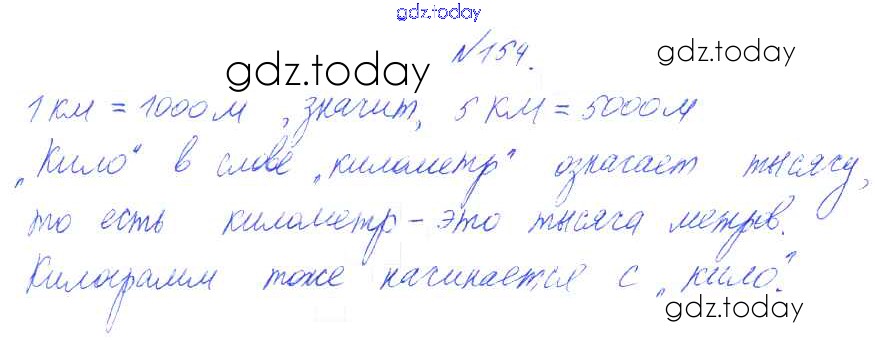 gdz.today
№154.
gdz.today
gdz.today
1 км = 1000 м , значит, 5 км = 5000 м
„Кило“ в слове „километр“ означает тысячу,
то есть километр – это тысяча метров.
Килограмм тоже начинается с „кило“.
gdz.today